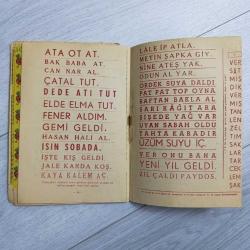 ATA OT AT.
BAK BABA AT.
CAN NAR AL.
ÇATAL TUT.
DEDE ATI TUT
ELDE ELMA TUT.
FENER ALDIM.
GEMİ GELDİ.
HASAN HALI AL.
IŞIN SOBADA.
İŞTE KIŞ GELDİ
JALE KARDA KOŞ.
KAYA KALEM AÇ.
LÂLE İP ATLA.
METİN ŞAPKA GİY.
NİNE ATEŞ YAK.
ODUN AL YAR.
ÖRDEK SUYA DALDI
PAT PAT TOP OYNA
RAFTAN BAKLA AL
SARI KÂĞIT ARA
ŞİŞEDE YAĞ VAR
UYAN SABAH OLDU
TAHTA KABADIR
ÜZÜM SUYU İÇ.
VER ONU BANA
YENİ YIL GELDİ.
ZİL ÇALDI PAYDOS.